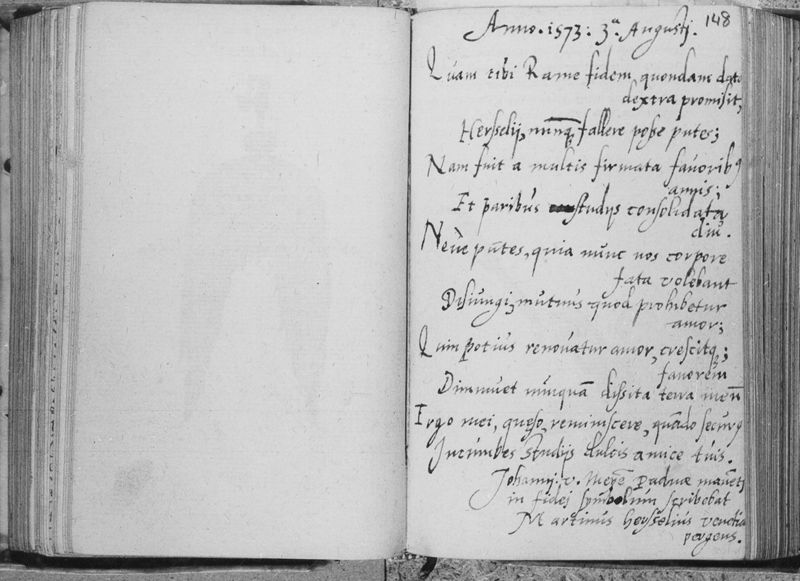 148
Anno. 1573: 3.a Augustj.
Quam tibi Rame fidem, quondam data
dextra promisit,
Hersselij, nunq fallere posse putes;
Nam fuit a multis firmata favorib9
annis;
Et paribus studijs consolidata
diu.
Neue putes, quia nunc nos corpore
fata volebant
Disiungi, mutuus quod prohibetur
amor;
Quim potius renovatur amor, crescitq;
favorem
Diminuet nunquā dissita terra meū
Ergo mei, queso, reminiscere, quādo secur9
Incumbes studijs dulcis amice tuis.
Johannj. v. Paduæ
in fidej symbolum scribebat
Martinus hersselius
pergens.